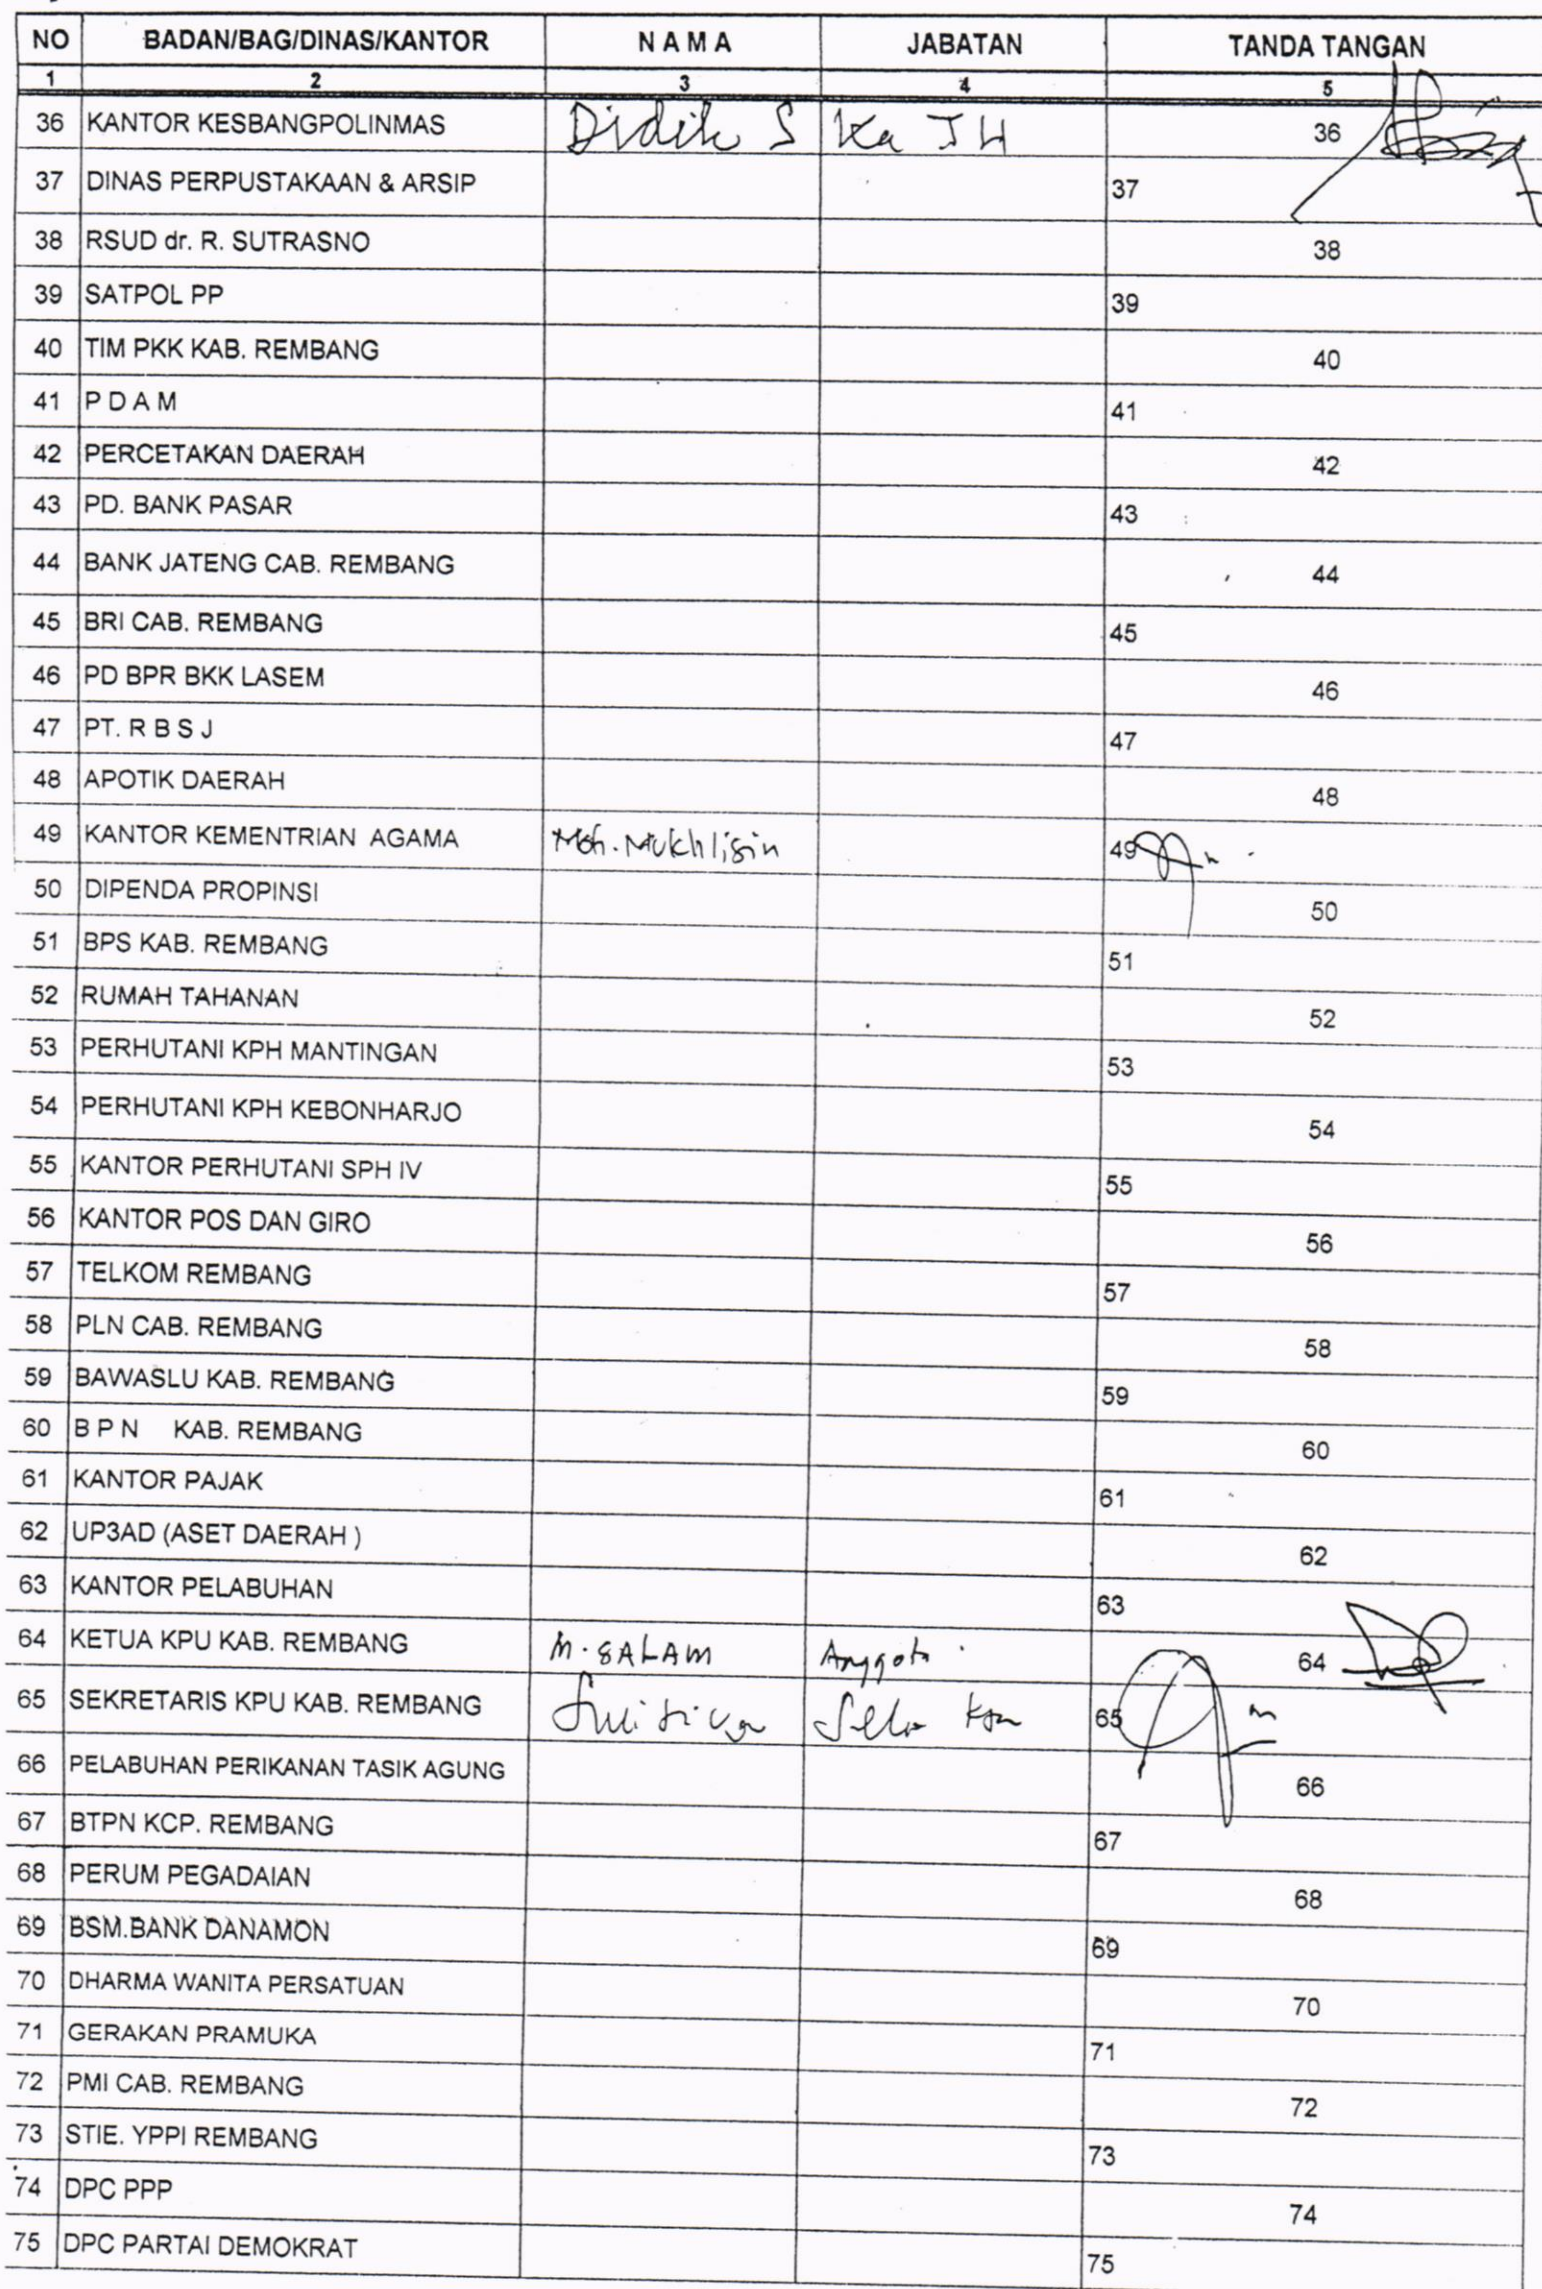 NO BADAN/BAG/DINAS/KANTOR N A M A JABATAN TANDA TANGAN
1 2 3 4 5
36 KANTOR KESBANGPOLINMAS Didik S Ka TU 36
37 DINAS PERPUSTAKAAN & ARSIP 37
38 RSUD dr. R. SUTRASNO 38
39 SATPOL PP 39
40 TIM PKK KAB. REMBANG 40
41 P D A M 41
42 PERCETAKAN DAERAH 42
43 PD. BANK PASAR 43
44 BANK JATENG CAB. REMBANG 44
45 BRI CAB. REMBANG 45
46 PD BPR BKK LASEM 46
47 PT. R B S J 47
48 APOTIK DAERAH 48
49 KANTOR KEMENTRIAN AGAMA Moh. Mukhlisin 49
50 DIPENDA PROPINSI 50
51 BPS KAB. REMBANG 51
52 RUMAH TAHANAN 52
53 PERHUTANI KPH MANTINGAN 53
54 PERHUTANI KPH KEBONHARJO 54
55 KANTOR PERHUTANI SPH IV 55
56 KANTOR POS DAN GIRO 56
57 TELKOM REMBANG 57
58 PLN CAB. REMBANG 58
59 BAWASLU KAB. REMBANG 59
60 B P N KAB. REMBANG 60
61 KANTOR PAJAK 61
62 UP3AD (ASET DAERAH ) 62
63 KANTOR PELABUHAN 63
64 KETUA KPU KAB. REMBANG M. SALAM Anggota 64
65 SEKRETARIS KPU KAB. REMBANG 65
66 PELABUHAN PERIKANAN TASIK AGUNG 66
67 BTPN KCP. REMBANG 67
68 PERUM PEGADAIAN 68
69 BSM.BANK DANAMON 69
70 DHARMA WANITA PERSATUAN 70
71 GERAKAN PRAMUKA 71
72 PMI CAB. REMBANG 72
73 STIE. YPPI REMBANG 73
74 DPC PPP 74
75 DPC PARTAI DEMOKRAT 75